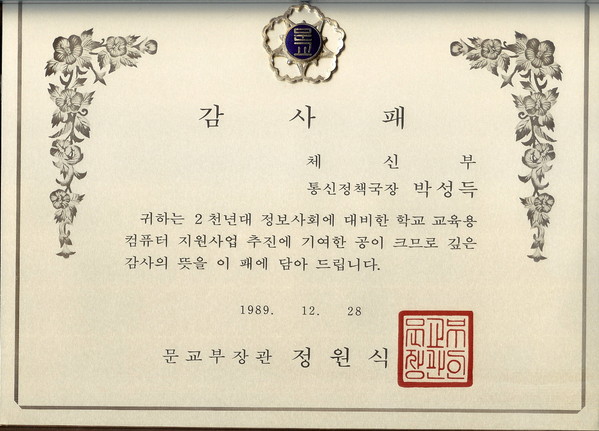 문교
감 사 패
체 신 부
통신정책국장 박성득
귀하는 2천년대 정보사회에 대비한 학교 교육용
컴퓨터 지원사업 추진에 기여한 공이 크므로 깊은
감사의 뜻을 이 패에 담아 드립니다.
1989. 12. 28
문교부장관 정원식
문교부
장관인